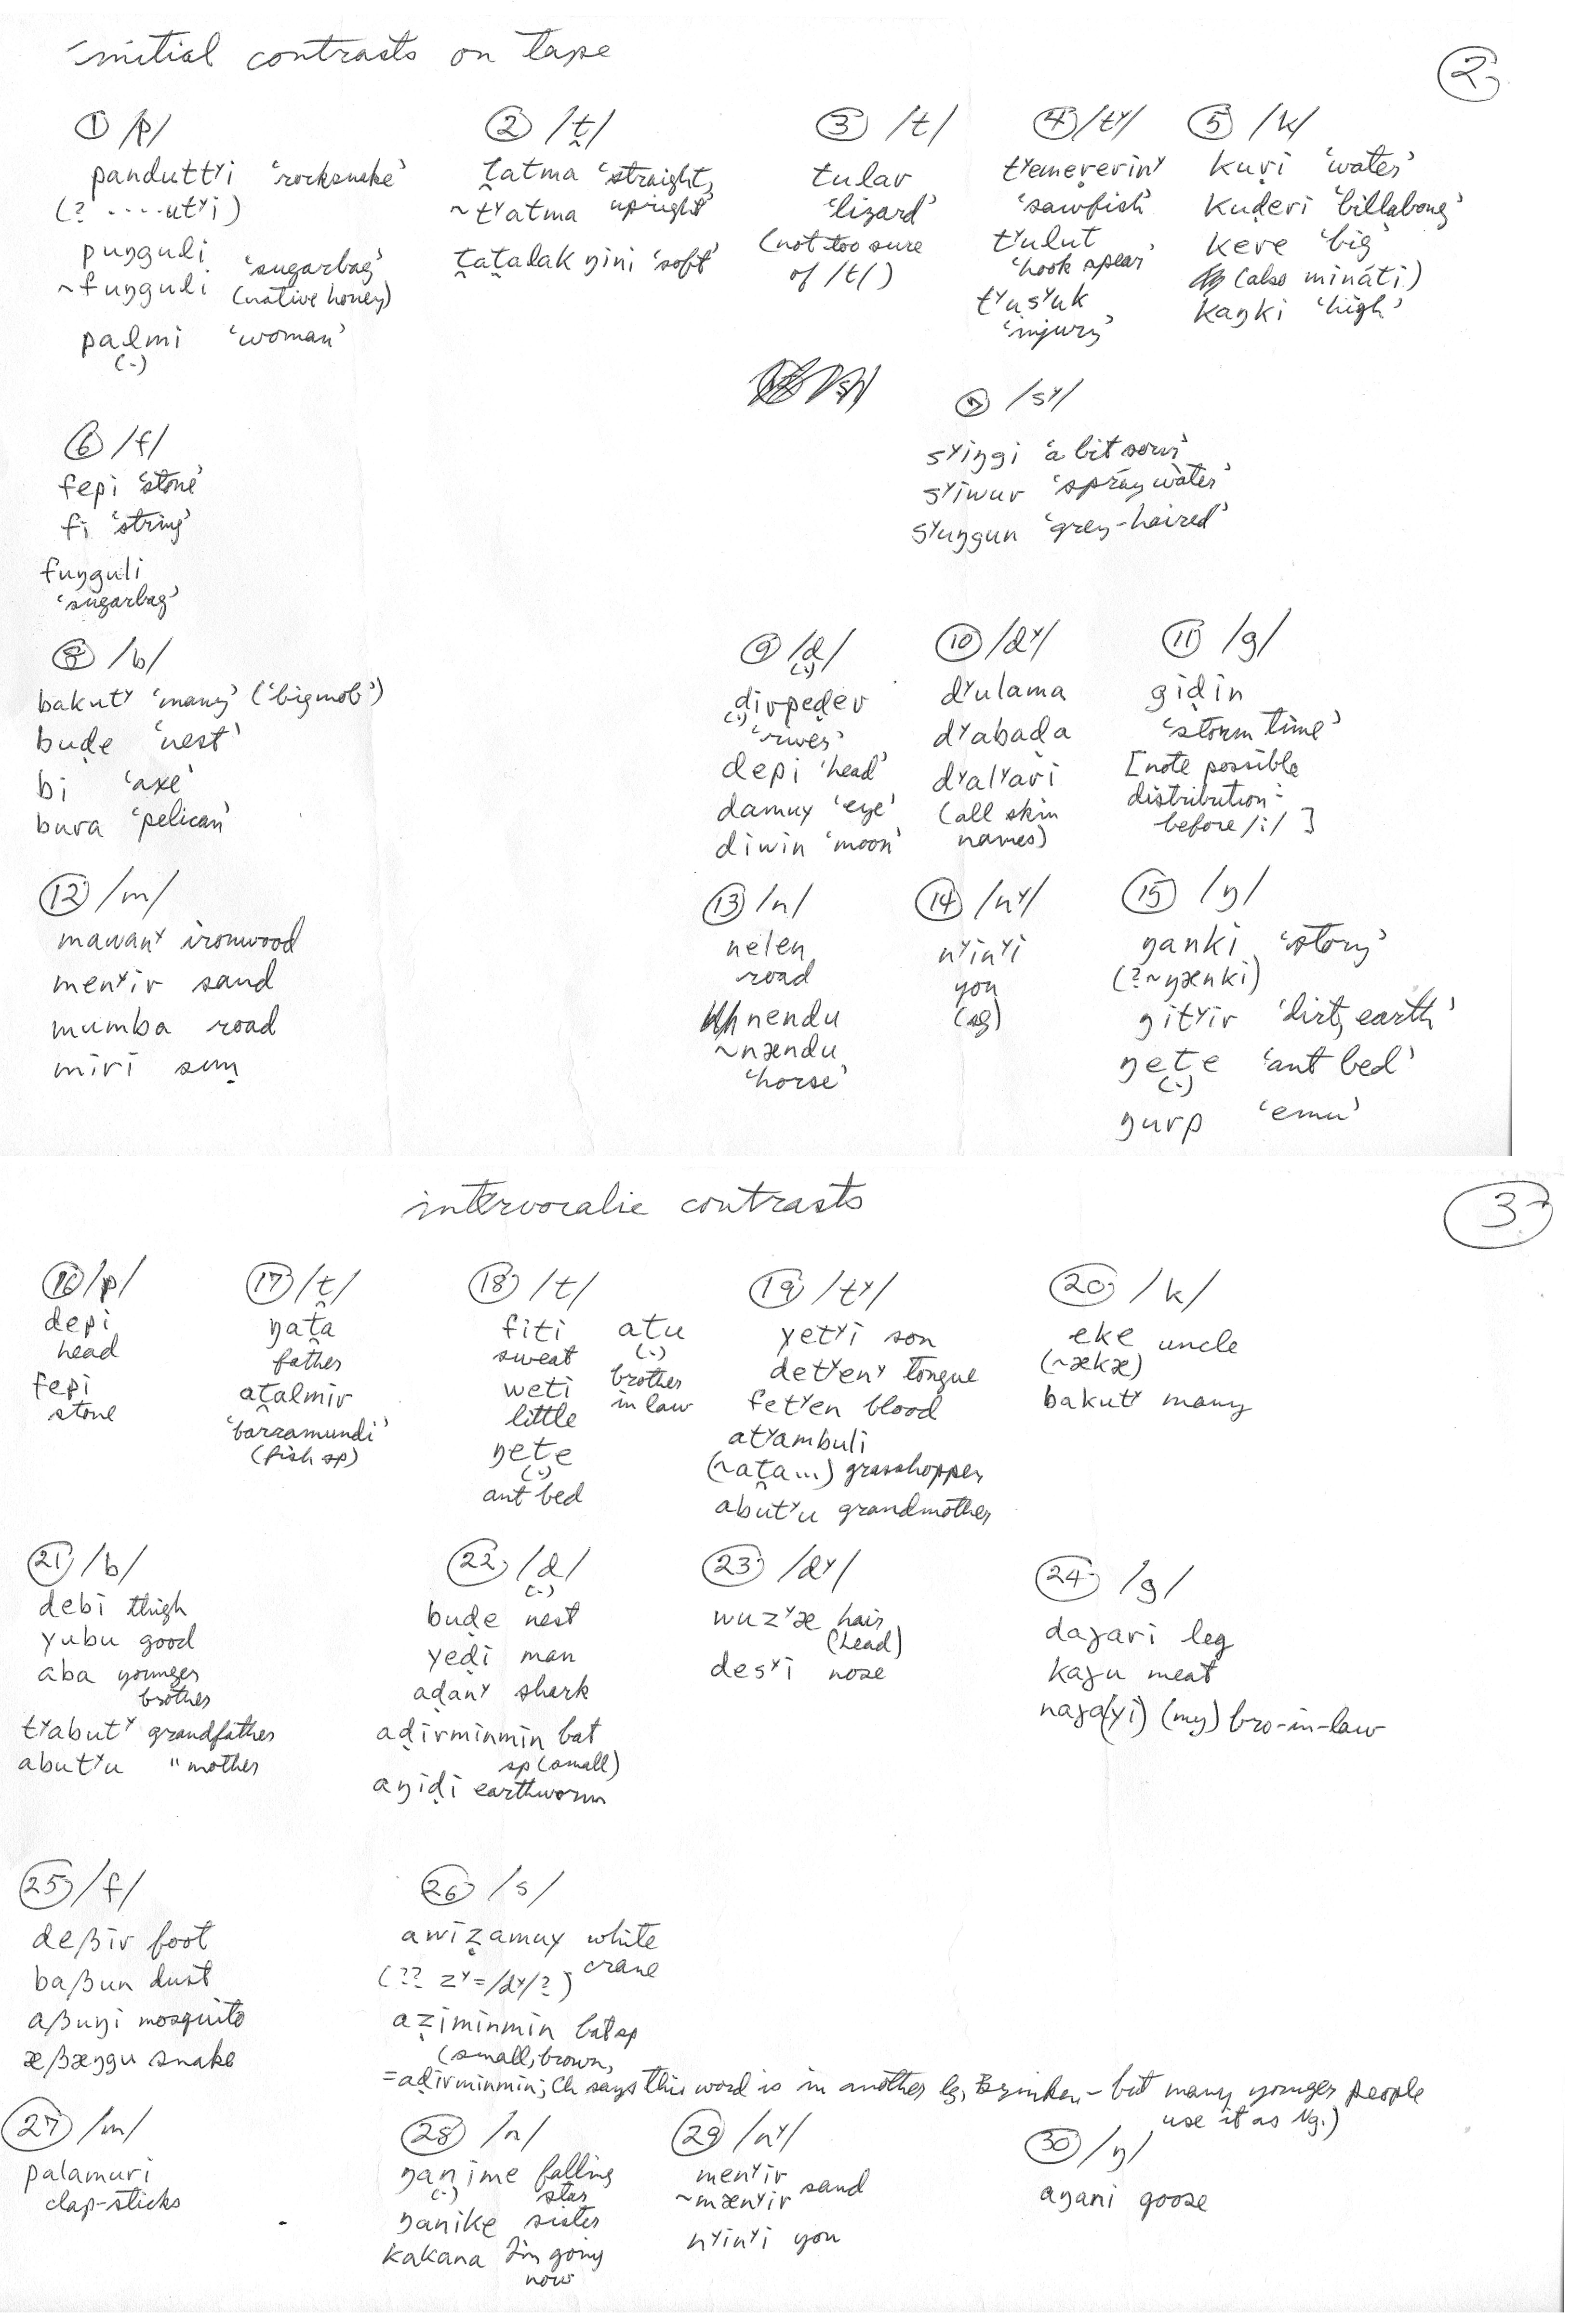 initial contrasts on tape
2
① /p/
panduttʸi 'rocksnake'
(? ....utʸi)
puŋguli
~fuŋguli 'sugarbag'
(native honey)
palmi 'woman'
(.)
② /t̪/
t̪atma 'straight,
~tʸatma upright'
t̪at̪alak ŋini 'soft'
③ /t/
tular
'lizard'
(not too sure
of /t/)
④ /tʸ/
tʸemeṛerinʸ
'sawfish'
tʸulut
'hook spear'
tʸusʸuk
'injury'
⑤ /k/
kuṛi 'water'
kuḍeri 'billabong'
kere 'big'
(also mináti)
kaŋki 'high'
⑥ /f/
fepi 'stone'
fi 'string'
fuŋguli
'sugarbag'
⑦ /sʸ/
sʸiŋgi 'a bit sour'
sʸiwur 'spray water'
sʸuŋgun 'grey-haired'
⑧ /b/
bakutʸ 'many' ('bigmob')
buḍe 'nest'
bi 'axe'
bura 'pelican'
⑨ /d/
(.)
dirpeḍer
(.) 'river'
depi 'head'
damuy 'eye'
diwin 'moon'
⑩ /dʸ/
dʸulama
dʸabada
dʸalʸari
(all skin
names)
⑪ /g/
gidin
'storm time'
[note possible
distribution:
before /i/ ]
⑫ /m/
mawanʸ ironwood
menʸir sand
mumba road
miri sun
⑬ /n/
nelen
road
nendu
~nændu
'horse'
⑭ /nʸ/
nʸinʸi
you
(sg)
⑮ /ŋ/
ŋanki 'story'
(?~ŋænki)
ŋitʸir 'dirt, earth'
ŋete 'ant bed'
(.)
ŋurp 'emu'
intervocalic contrasts
3
⑯ /p/
depi
head
fepi
stone
⑰ /t̪/
ŋat̪a
father
at̪almir
'barramundi'
(fish sp)
⑱ /t/
fiti
sweat
weti
little
ŋete
(.)
ant bed
atu
(.)
brother
in law
⑲ /tʸ/
yetʸi son
detʸenʸ tongue
fetʸen blood
atʸambuli
(~at̪a...) grasshopper
abutʸu grandmother
⑳ /k/
eke uncle
(~ækæ)
bakutʸ many
㉑ /b/
debi thigh
yubu good
aba younger
brother
tʸabutʸ grandfather
abutʸu " mother
㉒ /d/
(.)
buḍe nest
yeḍi man
aḍanʸ shark
aḍirminmin bat
sp (small)
aŋiḍi earthworm
㉓ /dʸ/
wuzʸæ hair
(head)
desʸi nose
㉔ /g/
daɣari leg
kaɣu meat
naɣa(yi) (my) bro-in-law
㉕ /f/
deβir foot
baβun dust
aβuŋi mosquito
æβæŋgu snake
㉖ /s/
awiẓamuy white
crane
(?? zʸ=/dʸ/?)
aẓiminmin bat sp
(small, brown,
=aḍirminmin; Ch says this word is in another lg, Brinken - but many younger people
use it as Ng.)
㉗ /m/
palamuri
clap-sticks
㉘ /n/
ŋanime falling
(.) star
ŋanike sister
kakana I'm going
now
㉙ /nʸ/
menʸir
~mænʸir sand
nʸinʸi you
㉚ /ŋ/
aŋani goose